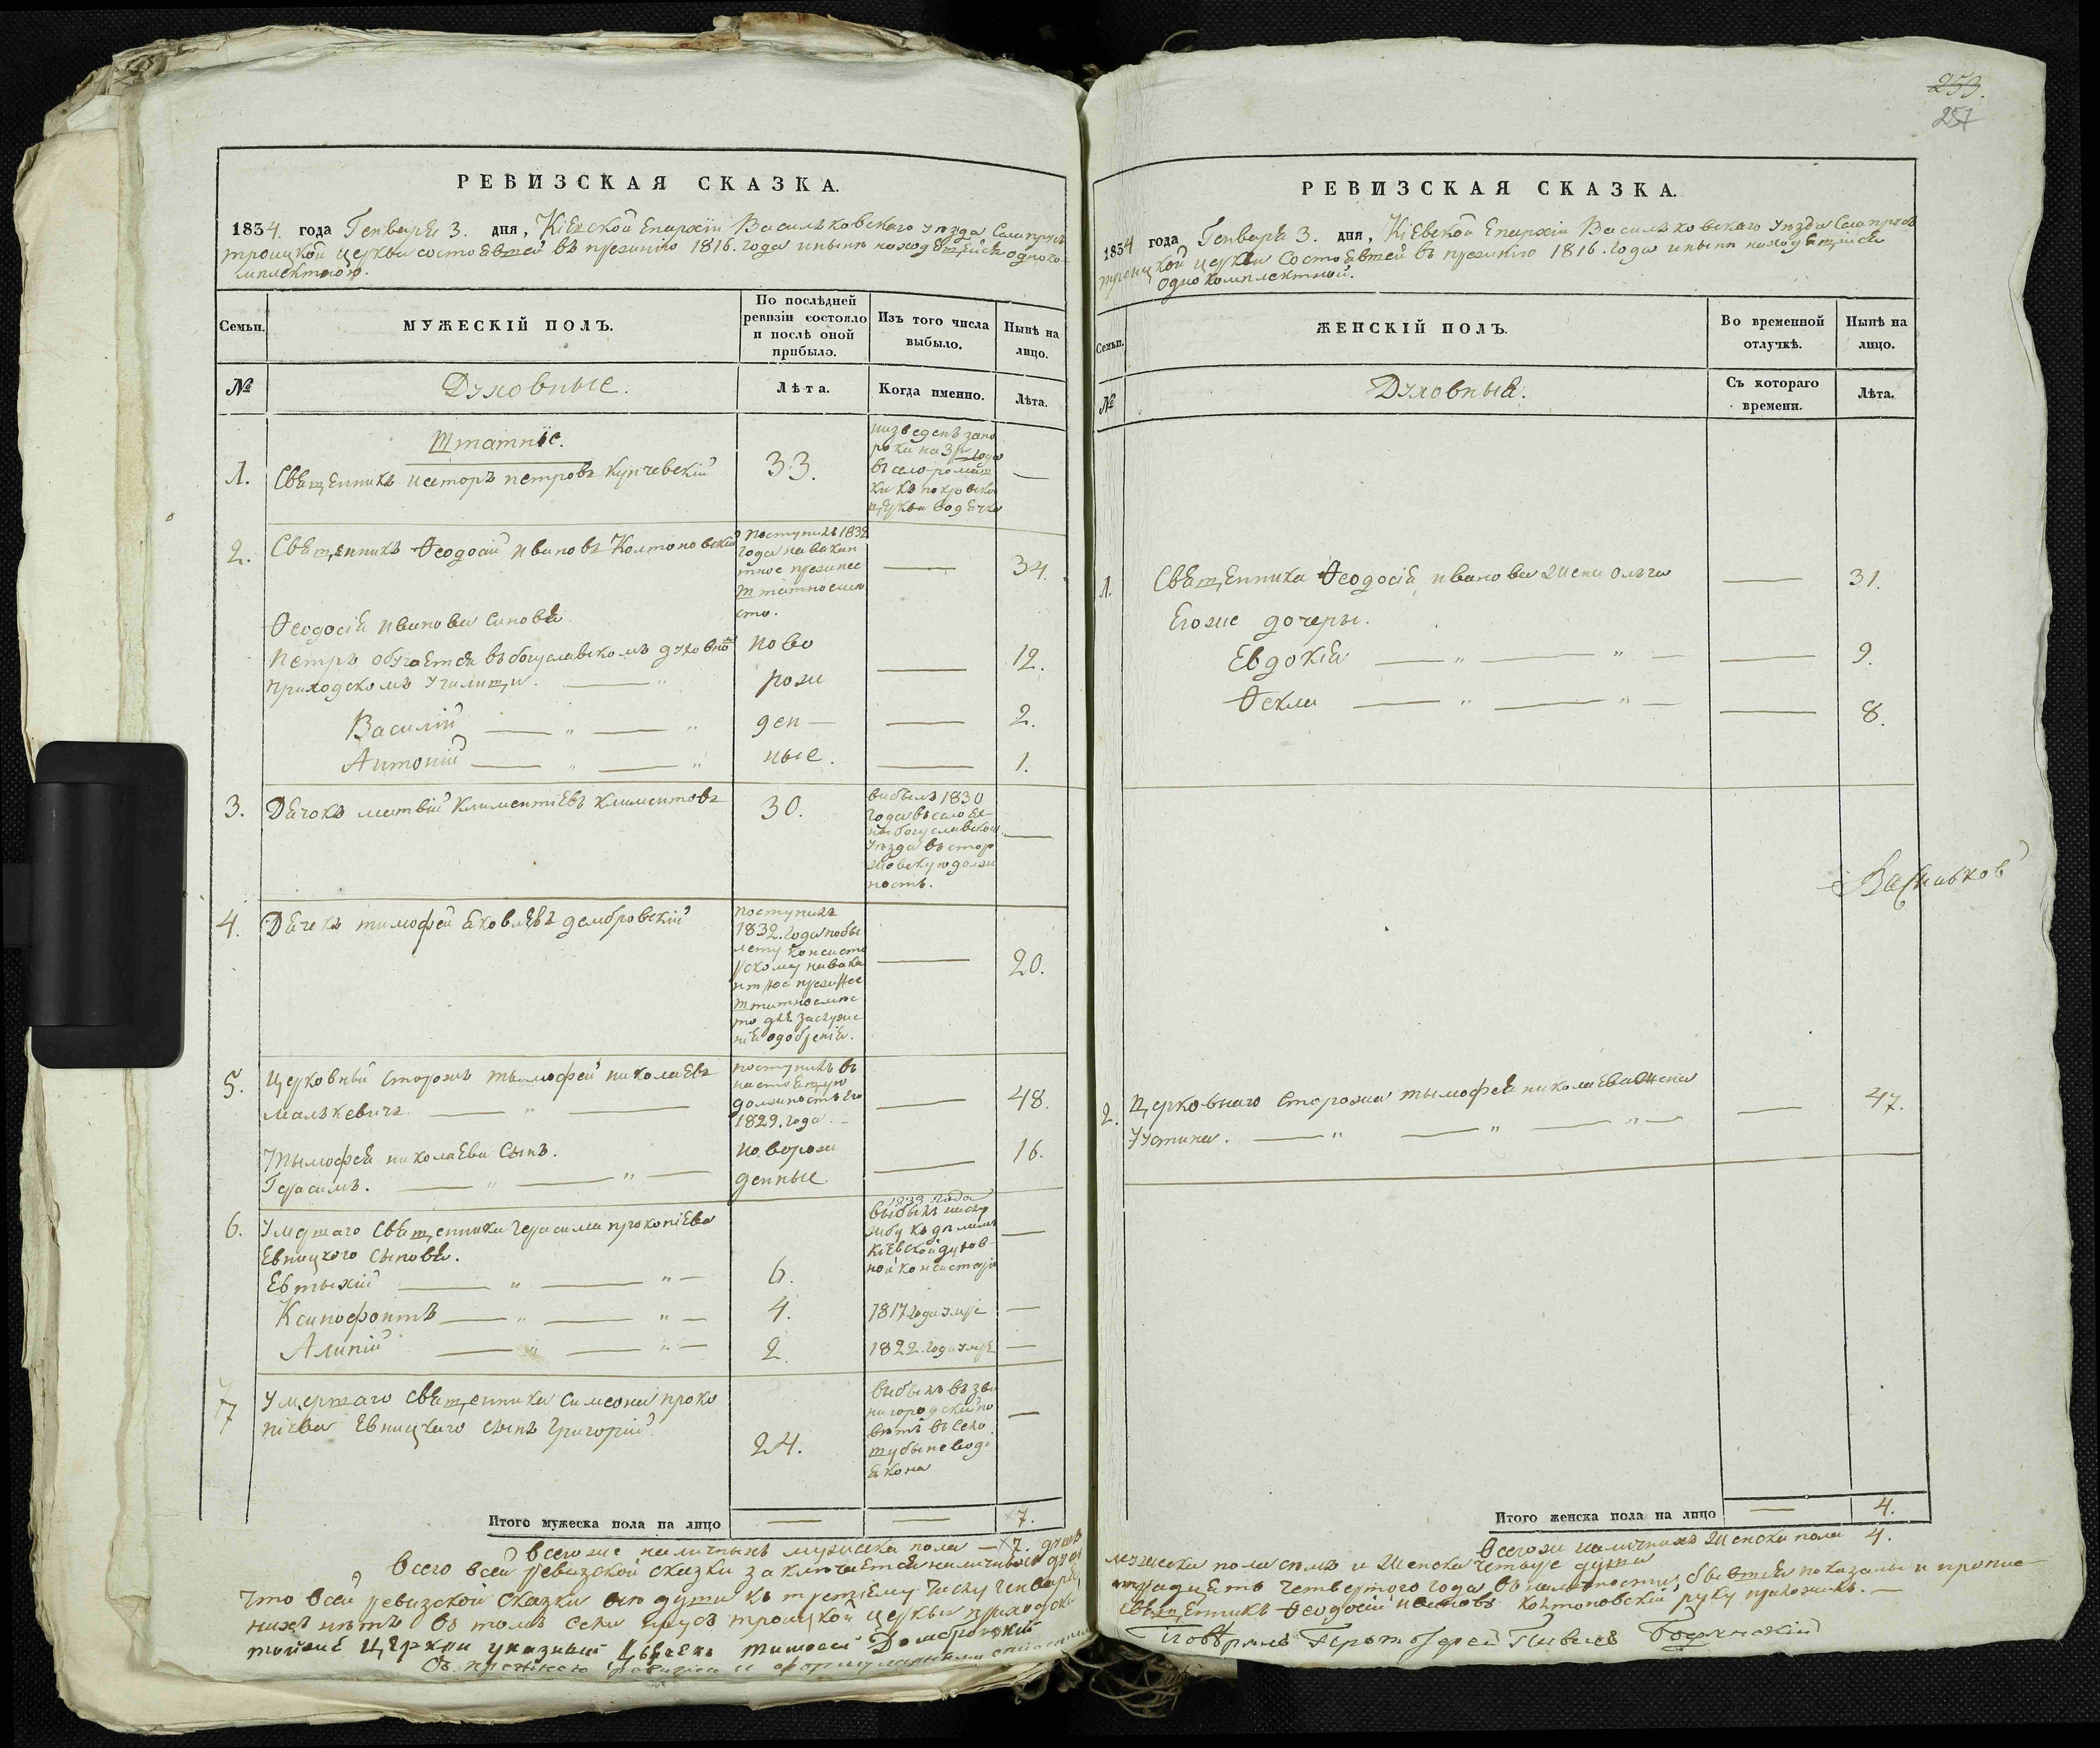 253.
257
РЕВИЗСКАЯ СКАЗКА.
1834. года Генваря 3. дня, Кіевской Епархіи Василковскаго уѣзда Села прусъ
троицкой церкви состоявшей въ ревизію 1816. года инынѣ находящейся одноко
мплектною.
Семьи.
МУЖЕСКІЙ ПОЛЪ.
По послѣдней ревизіи состояло и послѣ оной прибыло.
Изъ того числа выбыло.
Нынѣ на лицо.
№
Духовные.
Лѣта.
Когда именно.
Лѣта.
Штатніе.
1. Священникъ несторъ петровъ купчевскій
33.
низведенъ запо
роки на 3 года
въ село ромаш
ки къ покровско
церкви вод
—
2. Священникъ Ѳеодосій ивановъ Колтоновскій
Поступилъ 1832
года на вакан
тное
штатное мѣ
сто.
—
34.
Ѳеодосія иванова Синовя.
Петръ обучается въ богуславскомъ духовно
приходскомъ училищи. — "
ново
—
12.
рож
Василій — " — "
ден —
—
2.
Антоній — " — "
ные.
—
1.
3. Дячокъ матвій климентіевъ климентовъ
30.
вибылъ 1830
года въ село
богуславского
уѣзда въ стор
жовскую долж
ность.
—
4. Дячекъ тимофей яковлевъ домбровскій
поступилъ
1832. года по би
лету консисто
рскому на вака
нтное
штатное мѣс
то для заслуже
нія одобренія.
—
20.
5. Церковный сторожъ тымофей николаевъ
Малькевичъ — " —
поступилъ въ
настоящую
должность его
1829. года —
—
48.
Тымофея николаева Сынъ.
Герасимъ. — " — " —
новорож
денные
—
16.
6. Умершаго Священника герасима прокопіева
Евницкого сыновя.
Евтыхій — " — " —
6.
1833 года
выбылъ
жбу къ дѣламъ
кіевской духов
ной консисторіи
—
Ксинофонтъ — " — " —
4.
1817 года умре
—
Алипій — " — " —
2.
1822. года умре
—
7 Умершаго священника Симеона проко
піева Евницкаго сынъ Григорій
24.
вибылъ въ зве
нигородскій по
вѣтъ въ село
во дь
якона
—
Итого мужеска пола на лицо
—
—
7.
Всегоже наличныхъ мужеска пола — 7. душъ
Всего всей ревизской сказки заключается наличныхъ душъ
Что всей ревизской сказки всѣ души къ третіему числу генваря
нихъ нѣтъ въ томъ села прусъ троицкой церкви приходскій
тойже Церкви указный дьячекъ тимофей Домбровскій
Съ прежнею ревизіею и формулярными списками
РЕВИЗСКАЯ СКАЗКА.
1834 года Генваря 3. дня, Кіевской Епархіи Василковскаго уѣзда Села прусъ
троицкой церкви Состоявшей въ ревизію 1816. года инынѣ находящейся
однокомплектной.
Семьи.
ЖЕНСКІЙ ПОЛЪ.
Во временной отлучкѣ.
Нынѣ на лицо.
№
Духовныя.
Съ котораго времени.
Лѣта.
1. Священника Ѳеодосія иванова жена ольга
—
31.
Егоже дочеры.
Евдокія — " — " —
—
9.
Ѳекла — " — " —
—
8.
Васильков
2. Церковнаго Сторожа тымофея николаева жена
Устина. — " — " — " —
—
47.
Итого женска пола на лицо
—
4.
Всегожъ наличныхъ женска пола 4.
мужеска пола семъ и женска четыре души
тридцять четвертого года въ наличности бывшія показаны и пропис
священникъ Ѳеодосій ивановъ колтоновскій руку приложилъ. —
Повѣрялъ Протоіерей